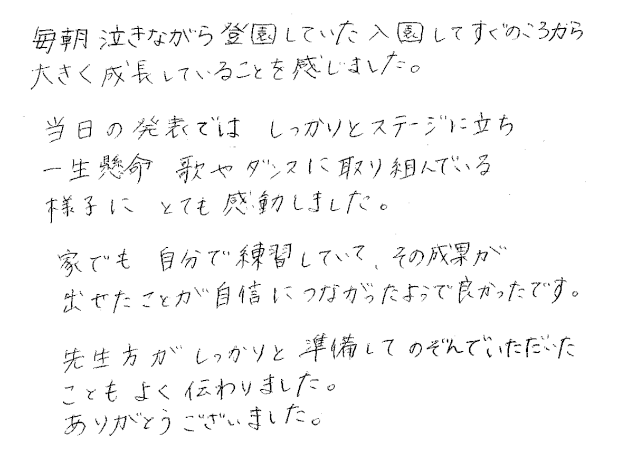 毎朝泣きながら登園していた入園してすぐのころから
大きく成長していることを感じました。
当日の発表では しっかりとステージに立ち
一生懸命 歌やダンスに取り組んでいる
様子に とても感動しました。
家でも 自分で練習していて、その成果が
出せたことが自信につながったようで良かったです。
先生方がしっかりと準備してのぞんでいただいた
こともよく伝わりました。
ありがとうございました。